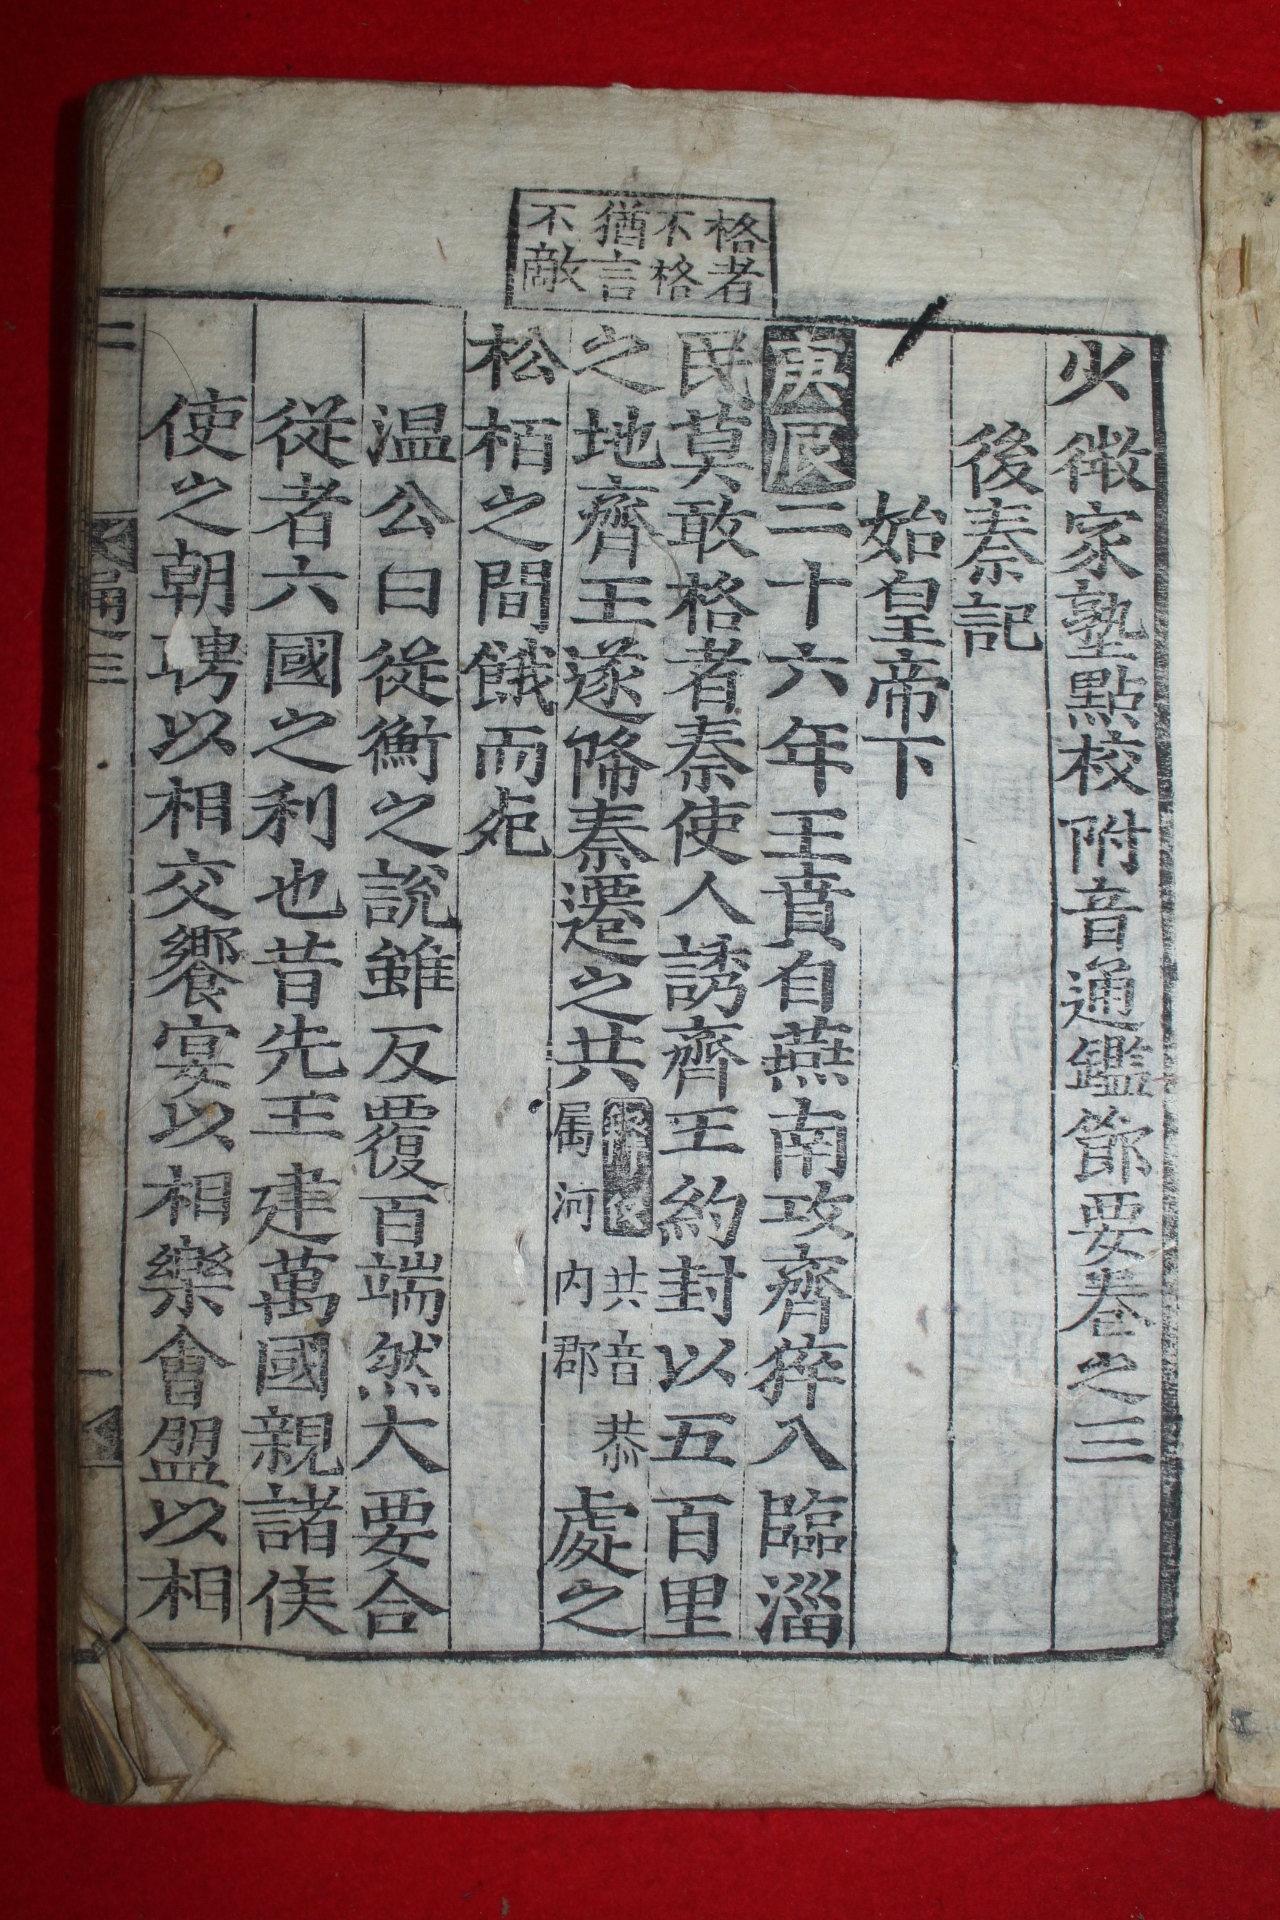 格者
不格
猶言
不敵
少微家塾點校附音通鑑節要卷之三
後秦記
始皇帝下
庚辰二十六年王賁自燕南攻齊猝入臨淄
民莫敢格者秦使人誘齊王約封以五百里
之地齊王遂降秦遷之共
釋義共音恭
属河内郡
處之
松栢之間餓而死
温公曰從衡之說雖反覆百端然大要合
從者六國之利也昔先王建萬國親諸侯
使之朝聘以相交饗宴以相樂會盟以相
通三
一
二